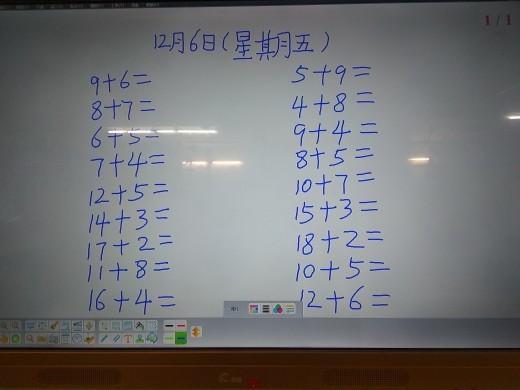 1/1
12月6日(星期五)
9+6=
8+7=
6+5=
7+4=
12+5=
14+3=
17+2=
11+8=
16+4=
5+9=
4+8=
9+4=
8+5=
10+7=
15+3=
18+2=
10+5=
12+6=